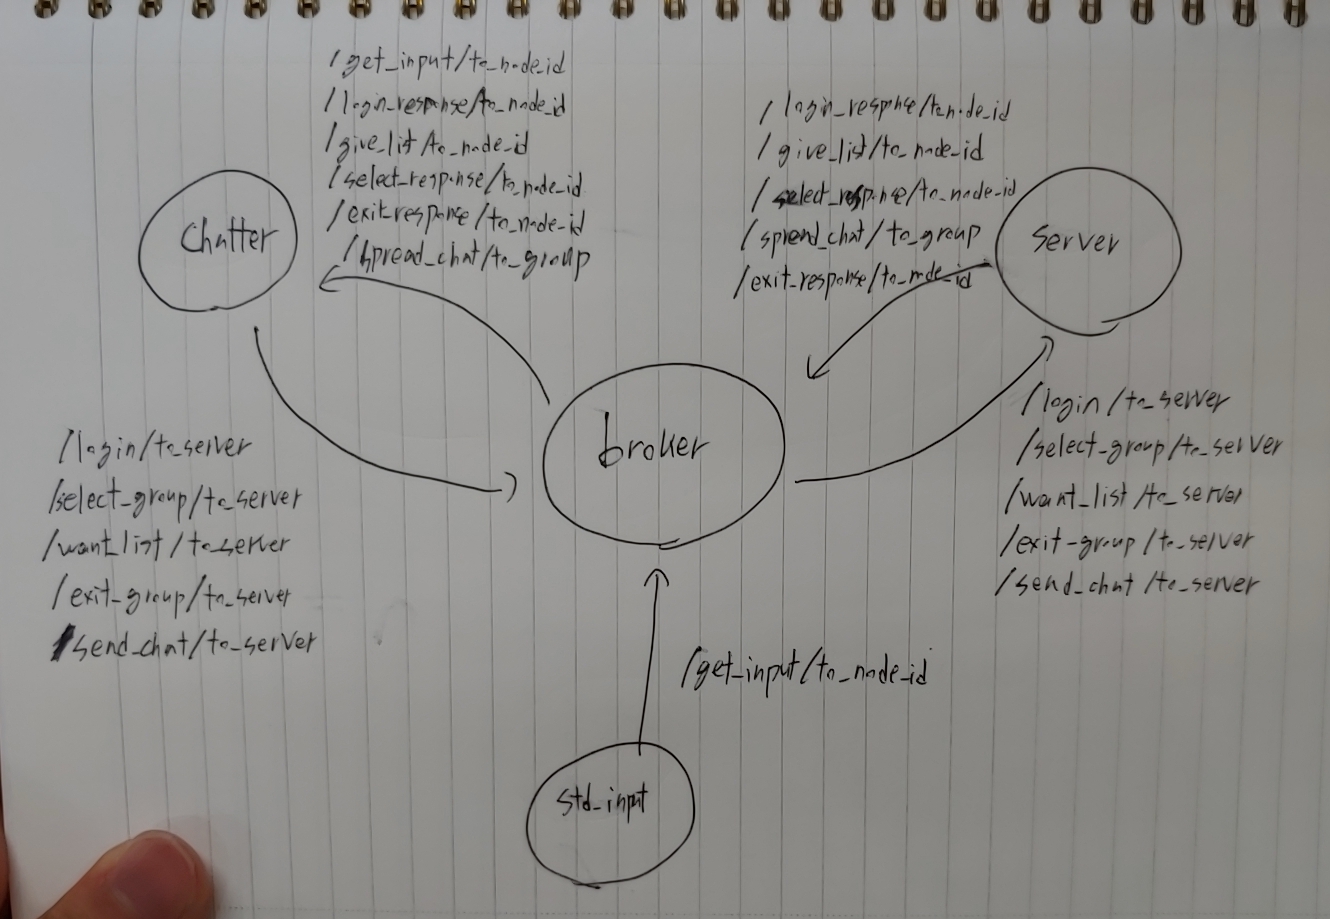 /get_input/to_node_id
/login_response/to_node_id
/give_list/to_node_id
/select_response/to_node_id
/exit_response/to_node_id
/spread_chat/to_group
/login_response/to_node_id
/give_list/to_node_id
/select_response/to_node_id
/spread_chat/to_group
/exit_response/to_node_id
Chatter
server
broker
/login/to_server
/select_group/to_server
/want_list/to_server
/exit_group/to_server
/send_chat/to_server
/login/to_server
/select_group/to_server
/want_list/to_server
/exit_group/to_server
/send_chat/to_server
/get_input/to_node_id
std_input